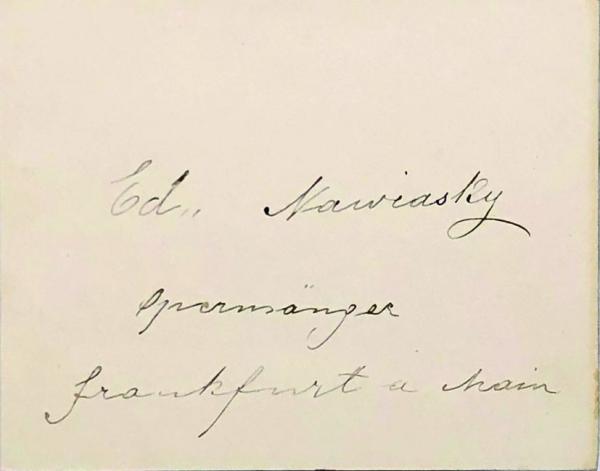 Ed. Nawiasky
Opernsänger
Frankfurt a Main